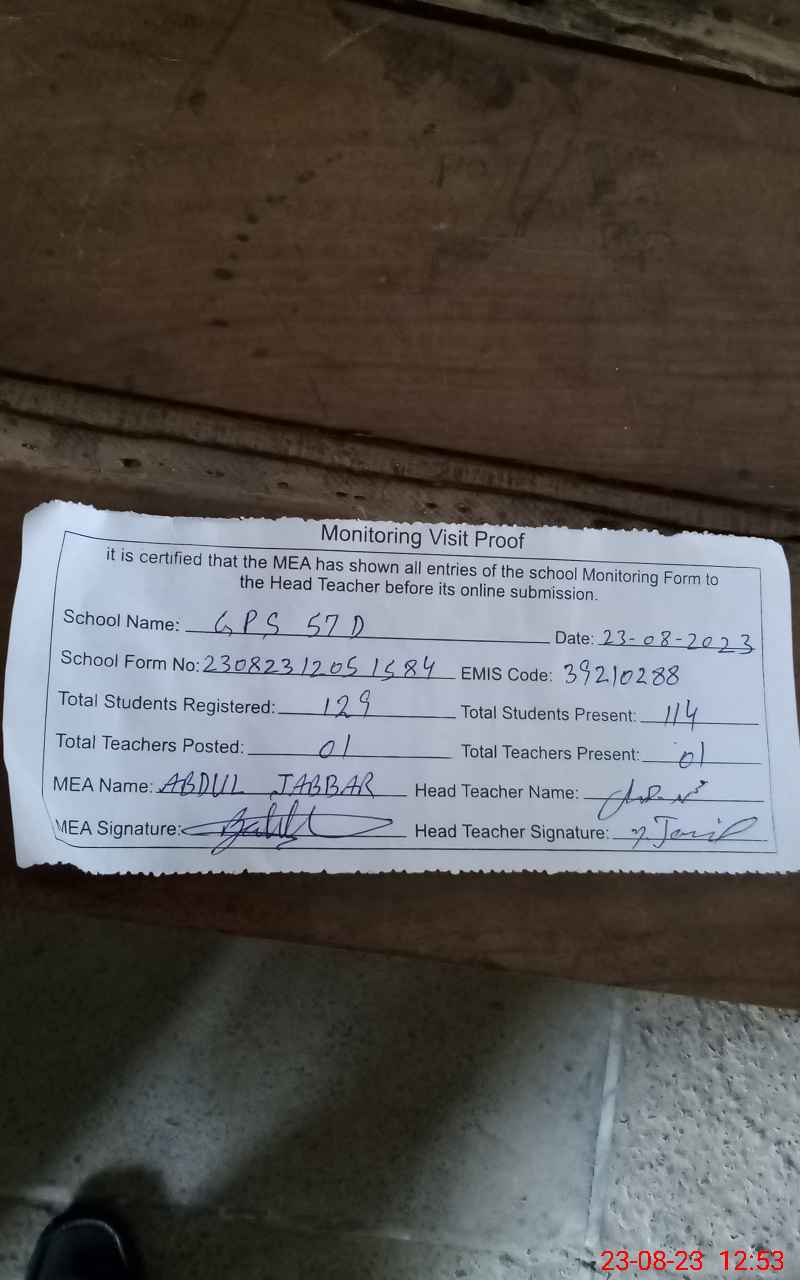 Monitoring Visit Proof
it is certified that the MEA has shown all entries of the school Monitoring Form to
the Head Teacher before its online submission.
School Name: GPS 57 D Date: 23-08-2023
School Form No: 23082312051584 EMIS Code: 39210288
Total Students Registered: 129 Total Students Present: 114
Total Teachers Posted: 01 Total Teachers Present: 01
MEA Name: ABDUL JABBAR Head Teacher Name:
MEA Signature: Head Teacher Signature:
23-08-23 12:53